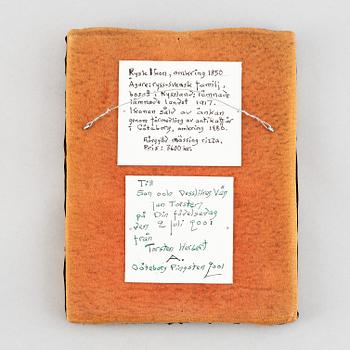 Rysk Ikon, omkring 1850.
Ägare: rysk-svensk familj,
bosatt i Ryssland; lämnade
lämnade landet 1917.
Ikonen såld av änkan
genom förmedling av antikaffär
i Göteborg, omkring 1980.
mässing rizza.
Pris: 3600 kr.
Till
Son och Vän
Jan Torsten
på Din födelsedag
den 2 juli 2001
från
Torsten Herbert
A.
Göteborg Pingsten 2001